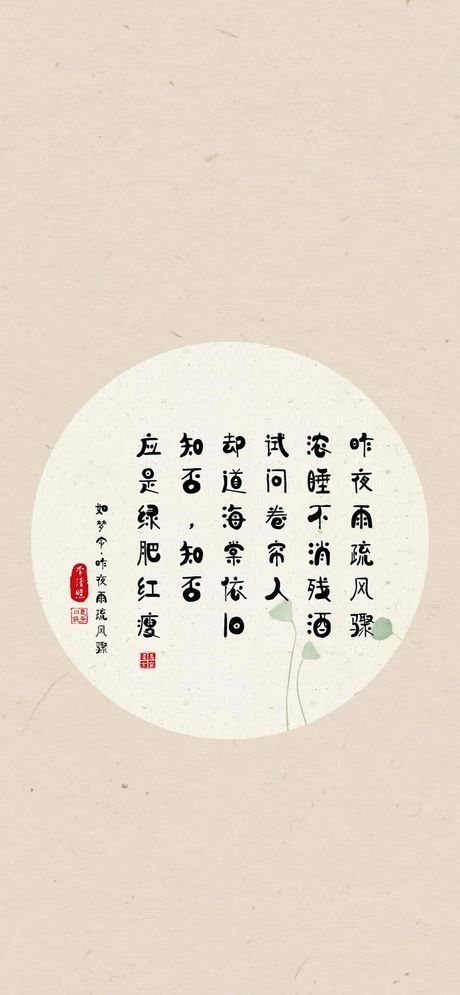 昨夜雨疏风骤
浓睡不消残酒
试问卷帘人
却道海棠依旧
知否，知否
应是绿肥红瘦
如梦令·昨夜雨疏风骤
李清照